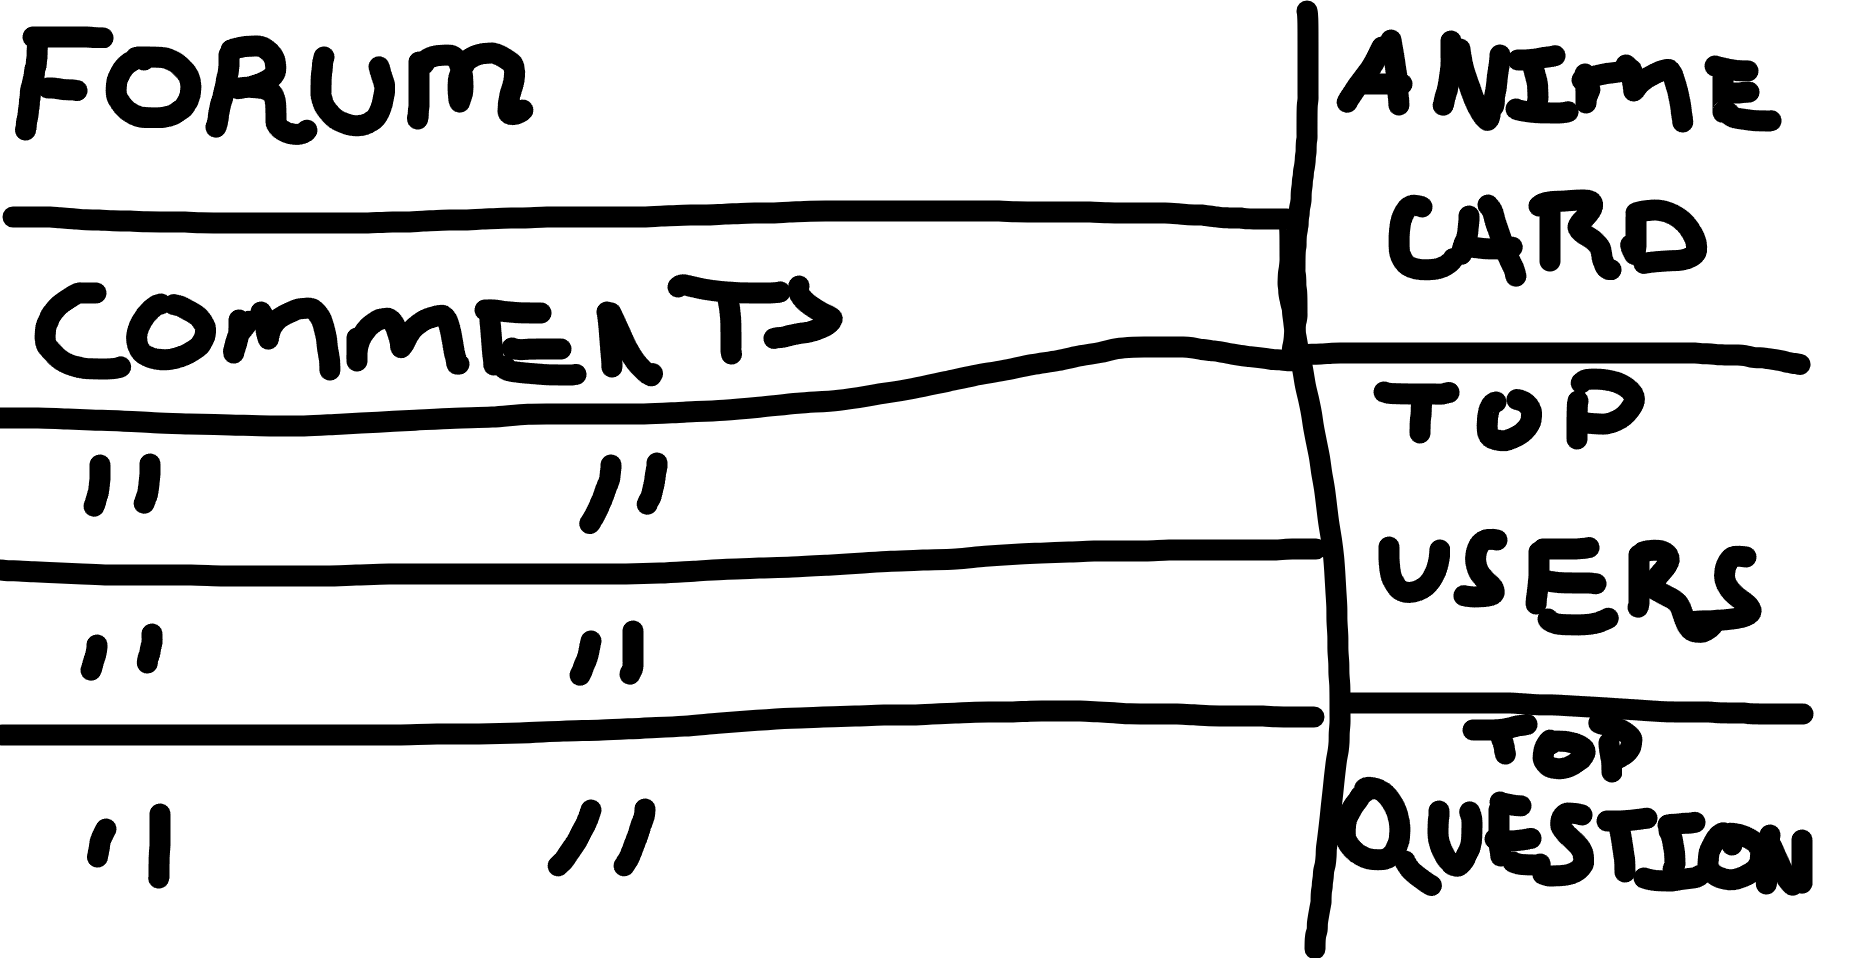 FORUM
COMMENTS
" "
" "
" "
ANIME
CARD
TOP
USERS
TOP
QUESTION